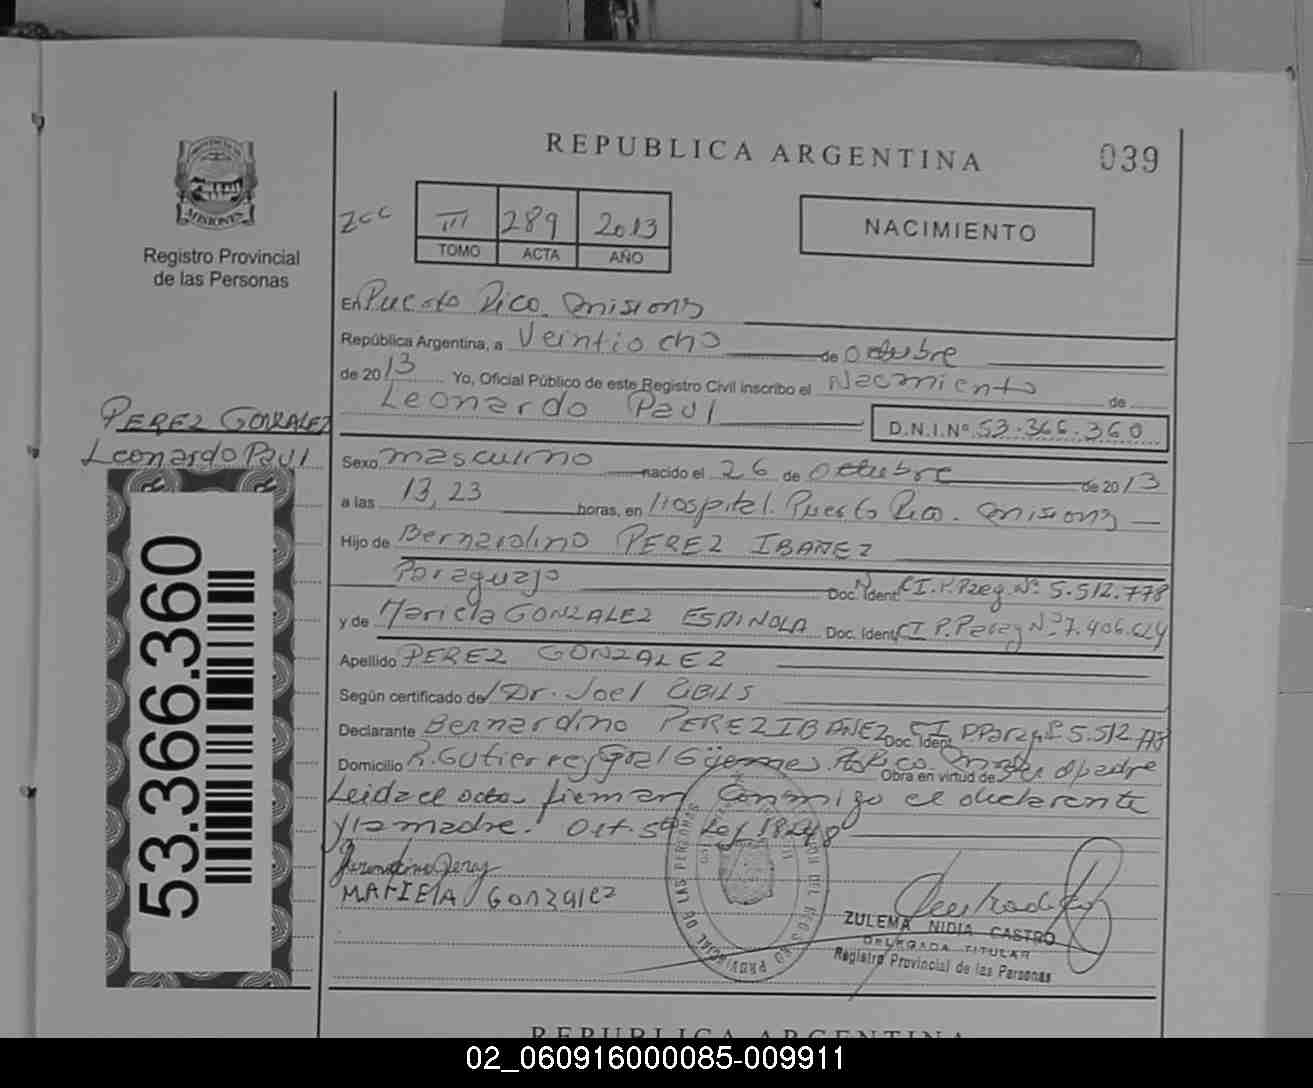 REPUBLICA ARGENTINA
039
MISIONES
Registro Provincial
de las Personas
zcc
III 289 2013
TOMO ACTA AÑO
NACIMIENTO
En Puerto Rico. Misiones
República Argentina, a Veintiocho de Octubre
de 2013 Yo, Oficial Público de este Registro Civil inscribo el Nacimiento de
Leonardo Paul
D.N.I.Nº 53.366.360
PEREZ GONZALEZ
Leonardo Paul
Sexo masculino nacido el 26 de Octubre de 2013
a las 13,23 horas, en Hospital. Puerto Rico. Misiones
Hijo de Bernardino PEREZ IBAÑEZ
Paraguayo Doc. Ident. CI.P.Parag.Nº 5.512.778
y de Mariela GONZALEZ ESPINOLA Doc. Ident. CI P.Parag Nº 7.406.624
Apellido PEREZ GONZALEZ
Según certificado de Dr. Joel
Declarante Bernardino PEREZ IBAÑEZ Doc. Ident. CI 5.512.778
Domicilio R.Gutierrez y Gral Güemes. Obra en virtud de ser el padre
Leida el acta firman conmigo el declarente
y la madre. Ley 18248
MARIELA GONZALEZ
53.366.360
ZULEMA NIDIA CASTRO
DELEGADA TITULAR
Registro Provincial de las Personas
REPUBLICA ARGENTINA
02_060916000085-009911